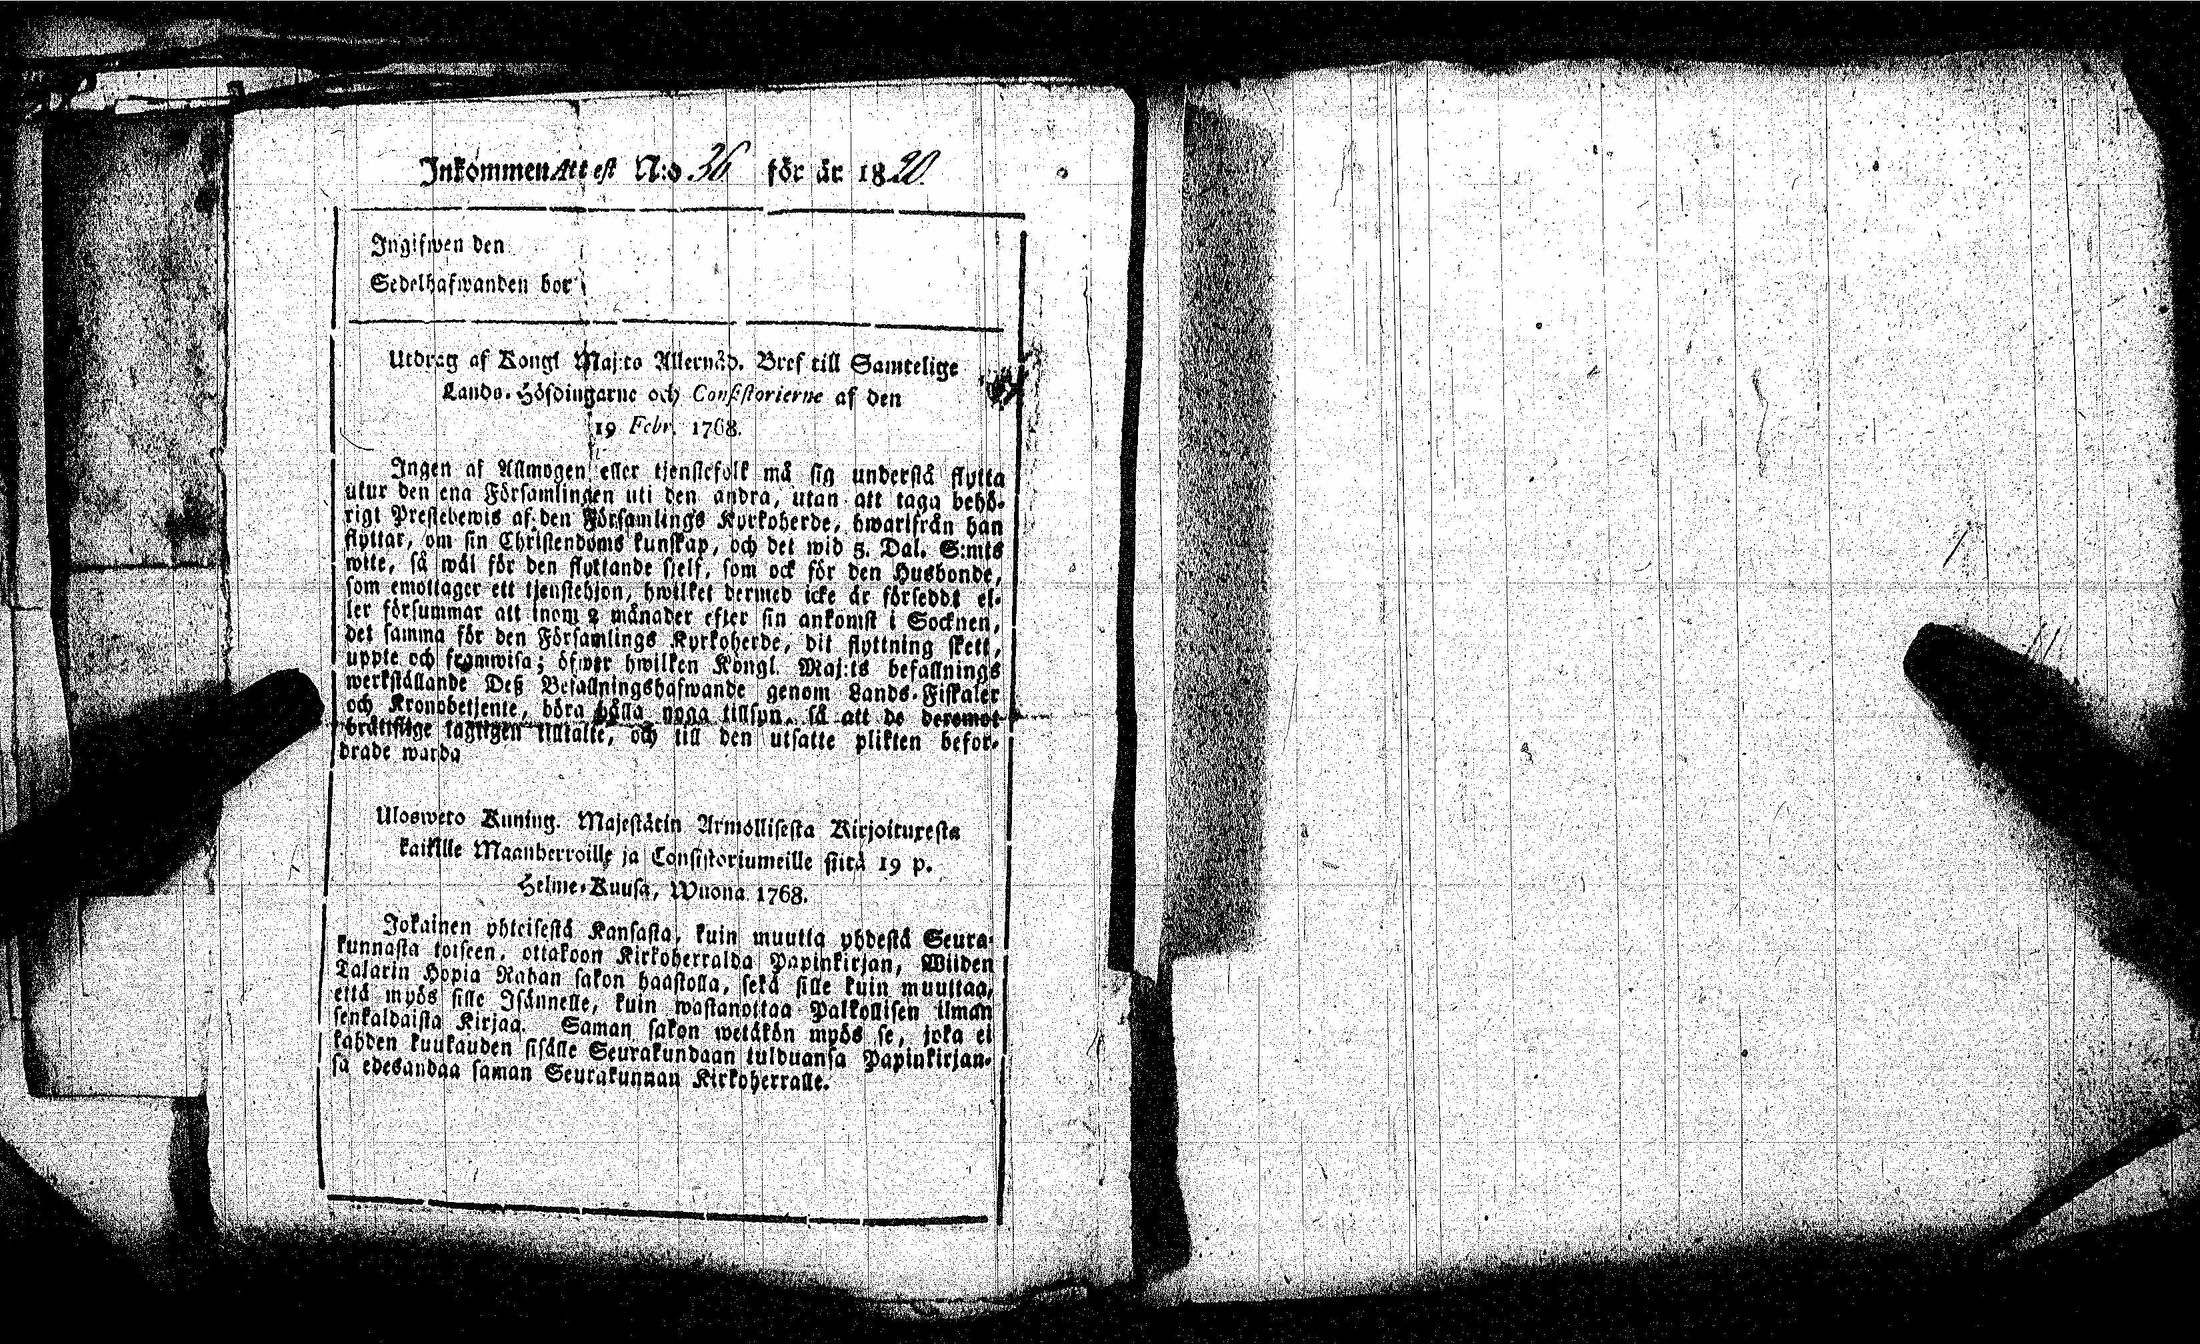 Inkommen Attest N:o 36 för år 1820.
Ingifwen den
Sedelhafwanden bor
Utdrag af Kongl Maj:ts Allernåd. Bref till Samtelige
Lands-Höfdingarne och Consistorierne af den
19 Febr. 1768.
Ingen af Allmogen eller tjenstefolk må sig understå flytta
utur den ena Församlingen uti den andra, utan att taga behö-
rigt Prestebewis af den Församlings Kyrkoherde, hwarifrån han
flyttar, om sin Christendoms kunskap, och det wid 5. Dal. S:mts
wite, så wäl för den flyttande sjelf, som ock för den Husbonde,
som emottager ett tjenstehjon, hwilket dermed icke är försedt el-
ler försummar att inom 2 månader efter sin ankomst i Socknen,
det samma för den Församlings Kyrkoherde, dit flyttning skett,
uppte och framwisa; öfwer hwilken Kongl. Maj:ts befallnings
werkställande Deß Befallningshafwande genom Lands-Fiskaler
och Kronobetjente, böra hålla noga tillsyn, så att de deremot
brottslige lagligen tilltalte, och till den utsatte plikten befor-
drade warda
Ulosweto Kuning. Majestätin Armollisesta Kirjoituxesta
kaikille Maanherroille ja Consistoriumeille siitä 19 p.
Helme-Kuusa, Wuona 1768.
Jokainen yhteisestä Kansasta, kuin muutta yhdestä Seura-
kunnasta toiseen, ottakoon Kirkoherralda Papinkirjan, Wiiden
Talarin Hopia Rahan sakon haastolla, sekä sille kuin muuttaa,
että myös sille Isännelle, kuin wastanottaa Palkollisen ilman
senkaldaista Kirjaa. Saman sakon wetäkön myös se, joka ei
kahden kuukauden sisälle Seurakundaan tulduansa Papinkirjan-
sa edesandaa saman Seurakunnan Kirkoherralle.